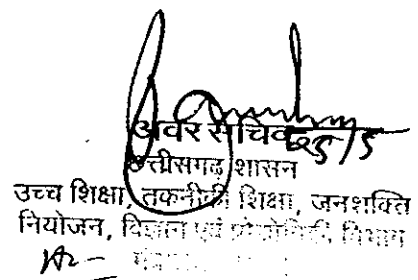 अवर सचिव 25/5
छत्तीसगढ़ शासन
उच्च शिक्षा, तकनीकी शिक्षा, जनशक्ति
नियोजन, विज्ञान एवं प्रौद्योगिकी विभाग